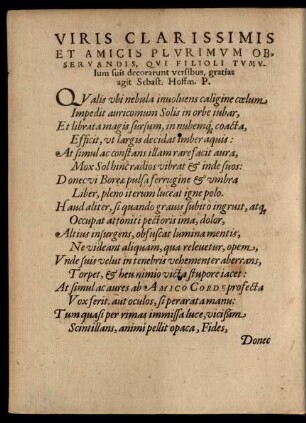 VIRIS CLARISSIMIS
ET AMICIS PLVRIMVM OB-
SERVANDIS, QVI FILIOLI TVMV-
lum suis decorarunt versibus, gratias
agit Sebast. Hoffm. P.
QValis vbi nebula inuoluens caligine cœlum
Impedit auricomum Solis in orbe iubar,
Et librata magis sursum, in nubemq́; coacta,
Efficit, vt largis decidat imber aquis:
At simul ac constans illam rarefacit aura,
Mox Sol hinc radios vibrat & inde suos:
Donec vi Boreæ pulsa ferrugine & vmbra
Liber, pleno iterum luceat igne polo.
Haud aliter, si quando grauis subitò ingruit, atq́;
Occupat attoniti pectoris ima, dolor,
Altius insurgens, obfuscat lumina mentis,
Ne videant aliquam, qua releuetur, opem,
Vnde sui velut in tenebris vehementer aberrans,
Torpet, & heu nimio victa stupore iacet:
At simul ac aures ab AMICO CORDE profecta
Vox ferit, aut oculos, si perarata manu:
Tum quasi per rimas immissa luce, vicißim
Scintillans, animi pellit opaca, Fides,
Donec